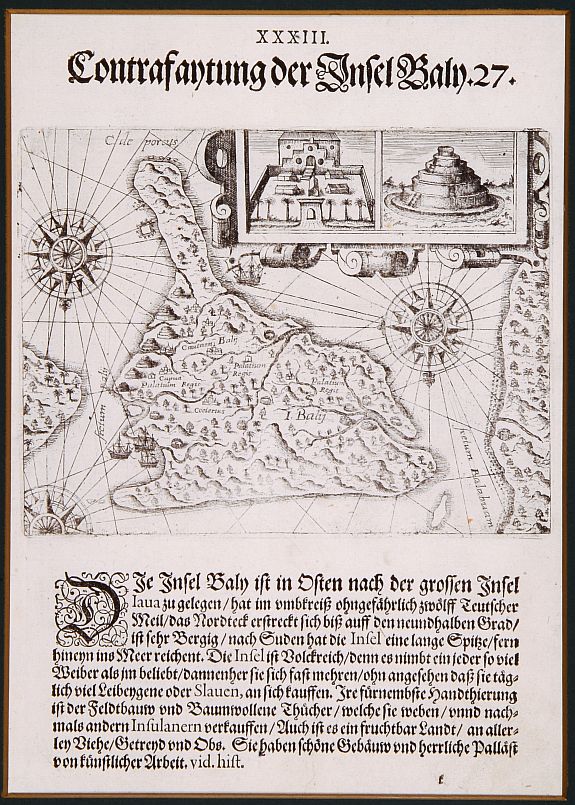 XXXIII.
Contrafaytung der Insel Baly. 27.
C. de porcus
Baly
Palatium
Regis
Palatium Regis
Palatium
Regis
I. Balÿ
fretum
fretum Balabuam
DIe Insel Baly ist in Osten nach der grossen Insel
Iaua zu gelegen / hat im vmbkreiß ohngefährlich zwölff Teutscher
Meil / das Nordteck erstreckt sich biß auff den neundhalben Grad /
ist sehr Bergig / nach Suden hat die Insel eine lange Spitze / fern
hineyn ins Meer reichent. Die Insel ist Volckreich / denn es nimbt ein jeder so viel
Weiber als jm beliebt / dannenher sie sich fast mehren / ohn angesehen daß sie täg-
lich viel Leibeygene oder Slauen, an sich kauffen. Ire fürnembste Handthierung
ist der Feldtbauw vnd Baumwollene Thücher / welche sie weben / vnnd nach-
mals andern Insulanern verkauffen / Auch ist es ein fruchtbar Landt / an aller-
ley Viehe / Getreyd vnd Obs. Sie haben schöne Gebäuw vnd herrliche Palläst
von künstlicher Arbeit. vid. hist.